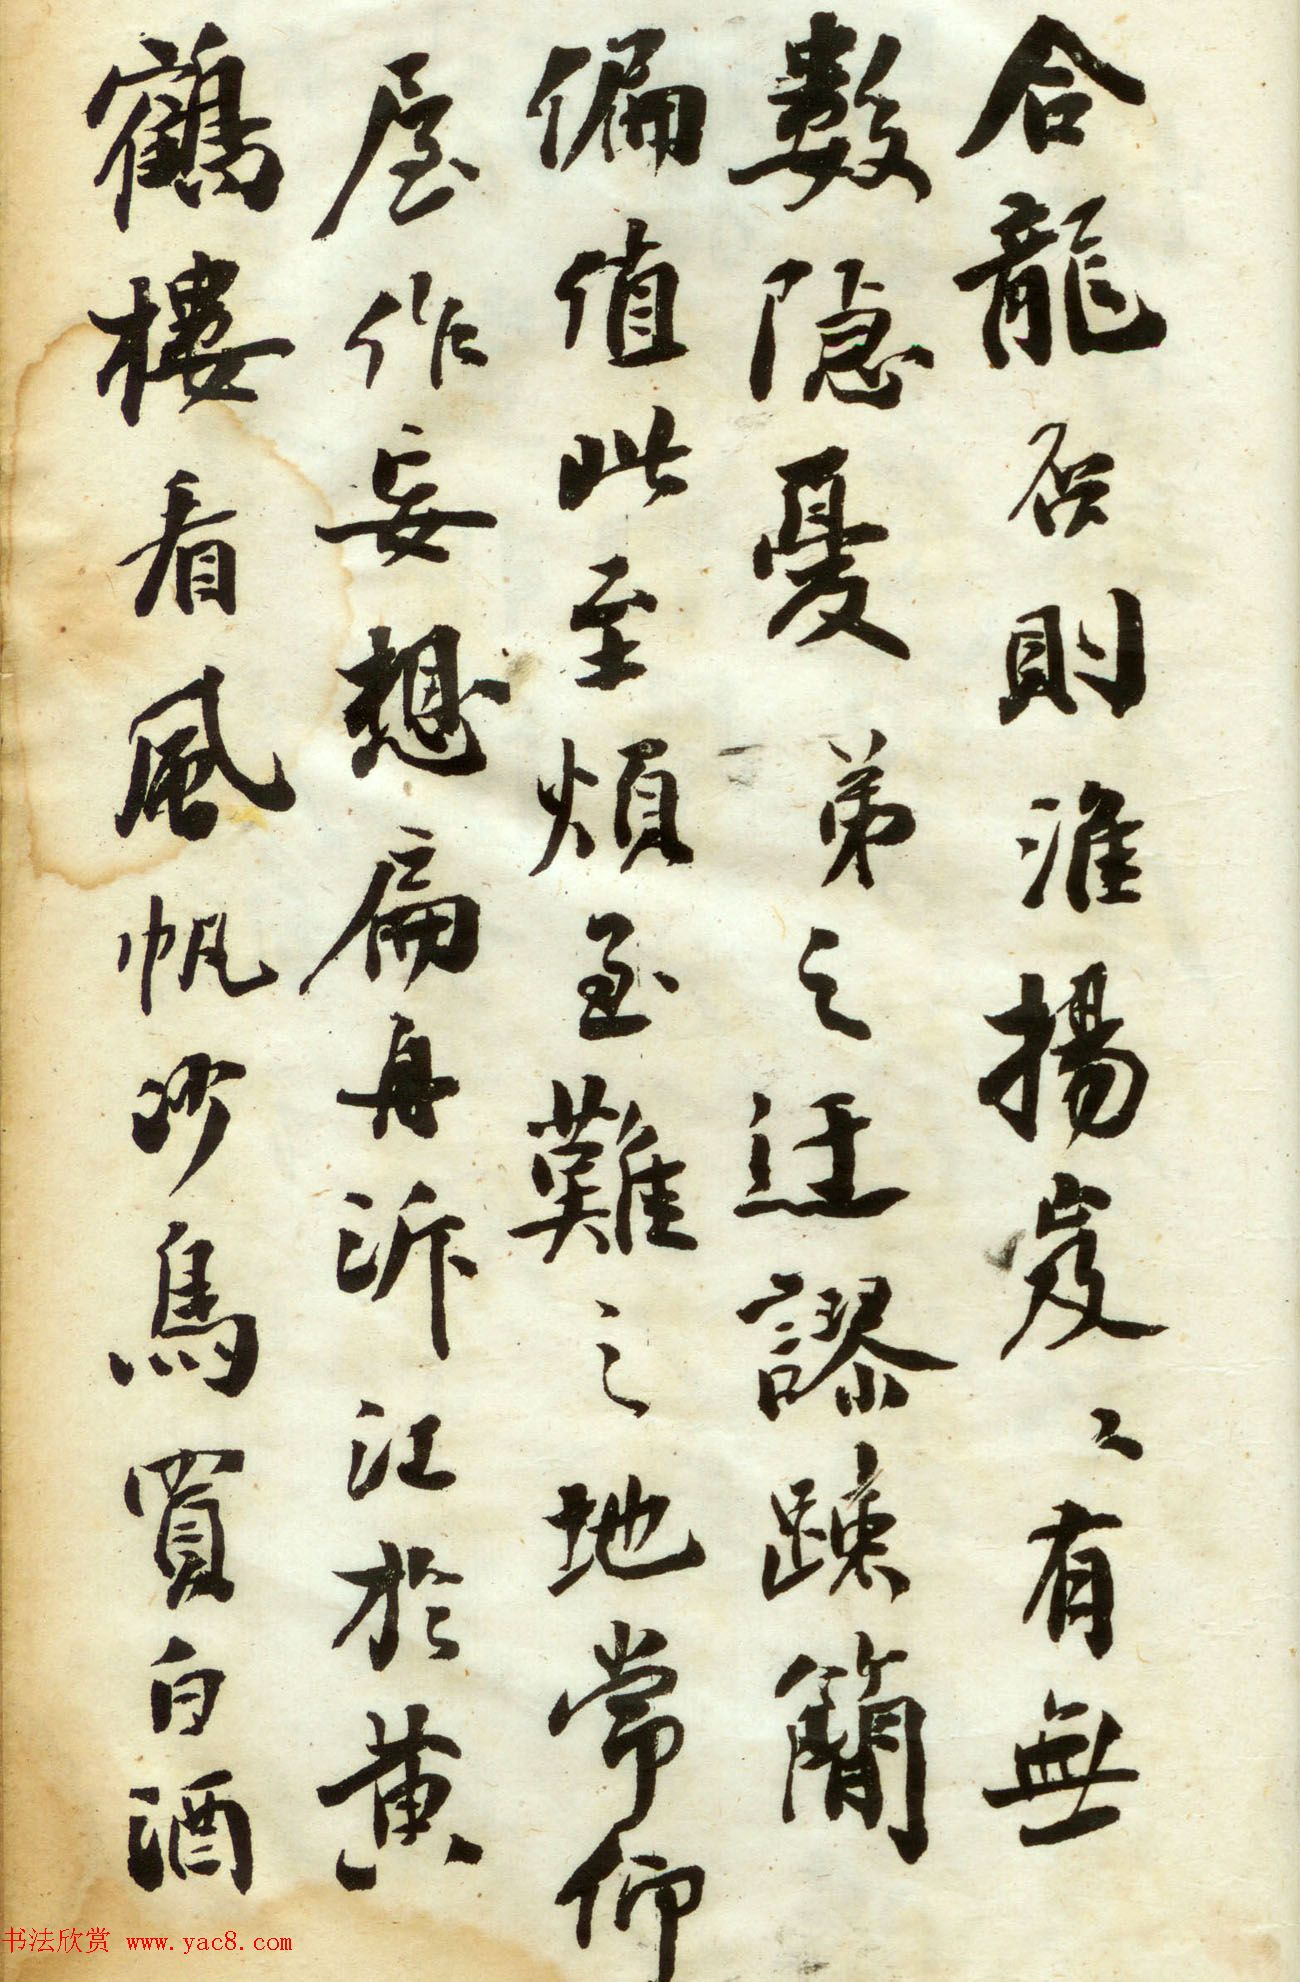 合龍否則淮揚岌〻有無
數隱憂弟之迂謬踈簡
偏值此至煩至難之地常仰
屋作妄想扁舟泝江於黃
鶴樓看風帆沙鳥買白酒
书法欣赏 www.yac8.com